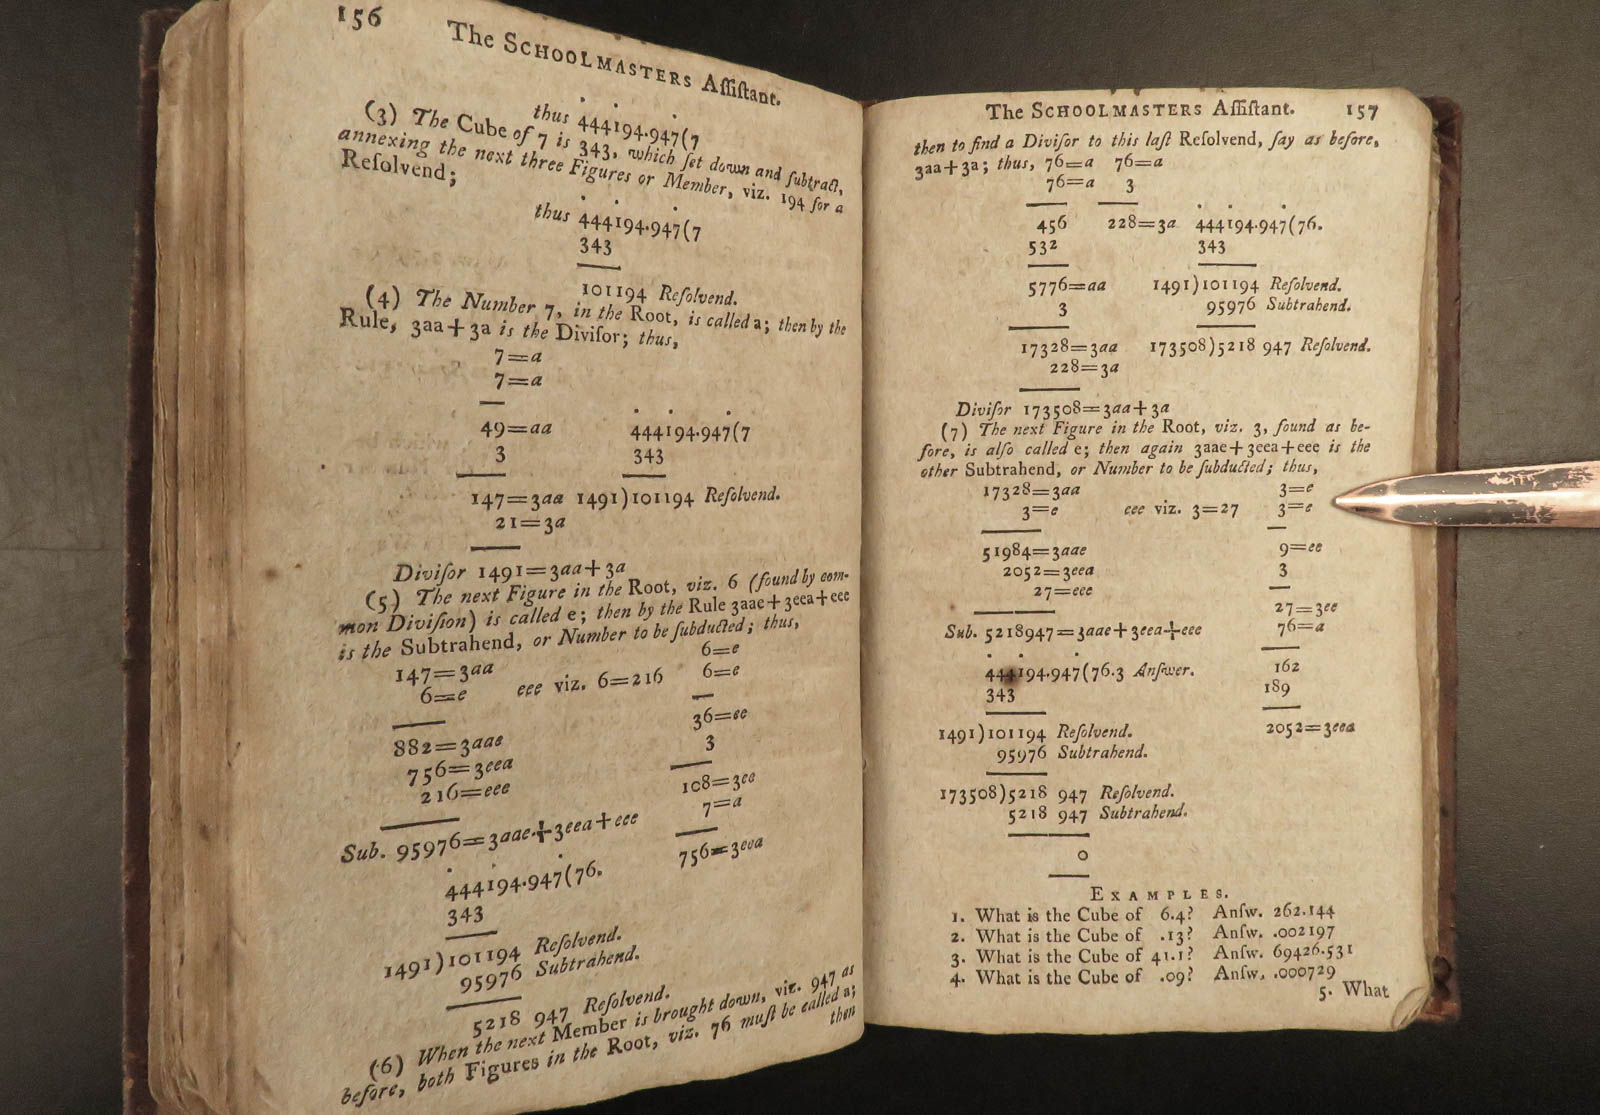 156
The SCHOOLMASTERS Aſſiſtant.
thus 444194.947(7
(3) The Cube of 7 is 343, which ſet down and ſubtract,
annexing the next three Figures or Member, viz. 194 for a
Reſolvend;
thus 444194.947(7
343
101194 Reſolvend.
(4) The Number 7, in the Root, is called a; then by the
Rule, 3aa+3a is the Diviſor; thus,
7=a
7=a
49=aa 444194.947(7
3 343
147=3aa 1491)101194 Reſolvend.
21=3a
Diviſor 1491=3aa+3a
(5) The next Figure in the Root, viz. 6 (found by com-
mon Diviſion) is called e; then by the Rule 3aae+3eea+eee
is the Subtrahend, or Number to be ſubducted; thus,
147=3aa 6=e
6=e eee viz. 6=216 6=e
882=3aae 36=ee
756=3eea 3
216=eee 108=3ee
Sub. 95976=3aae+3eea+eee 7=a
444194.947(76. 756=3eea
343
1491)101194 Reſolvend.
95976 Subtrahend.
5218 947 Reſolvend.
(6) When the next Member is brought down, viz. 947 as
before, both Figures in the Root, viz. 76 muſt be called a;
then
The SCHOOLMASTERS Aſſiſtant. 157
then to find a Diviſor to this laſt Reſolvend, ſay as before,
3aa+3a; thus, 76=a 76=a
76=a 3
456 228=3a 444194.947(76.
532 343
5776=aa 1491)101194 Reſolvend.
3 95976 Subtrahend.
17328=3aa 173508)5218 947 Reſolvend.
228=3a
Diviſor 173508=3aa+3a
(7) The next Figure in the Root, viz. 3, found as be-
fore, is alſo called e; then again 3aae+3eea+eee is the
other Subtrahend, or Number to be ſubducted; thus,
17328=3aa 3=e
3=e eee viz. 3=27 3=e
51984=3aae 9=ee
2052=3eea 3
27=eee
27=3ee
Sub. 5218947=3aae+3eea+eee 76=a
444194.947(76.3 Anſwer. 162
343 189
1491)101194 Reſolvend. 2052=3eea
95976 Subtrahend.
173508)5218 947 Reſolvend.
5218 947 Subtrahend.
0
EXAMPLES.
1. What is the Cube of 6.4? Anſw. 262.144
2. What is the Cube of .13? Anſw. .002197
3. What is the Cube of 41.1? Anſw. 69426.531
4. What is the Cube of .09? Anſw. .000729
5. What